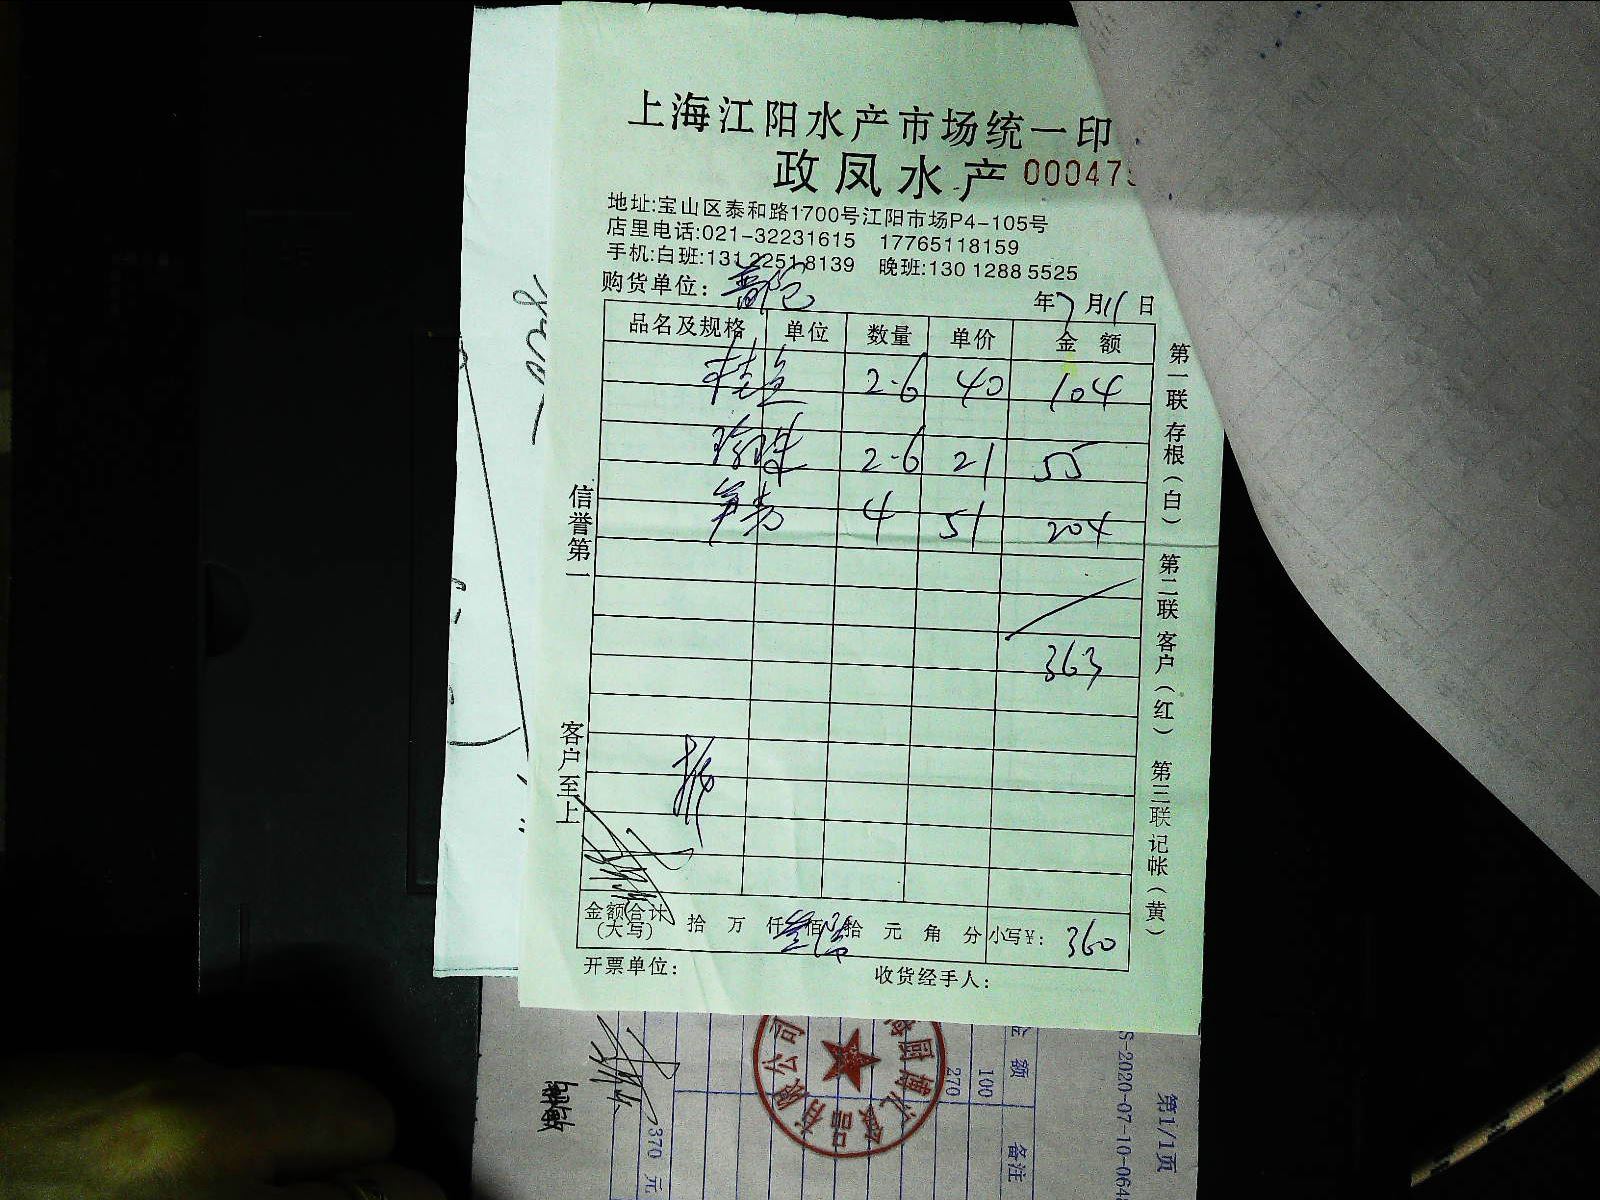 上海江阳水产市场统一印
政凤水产 000475
地址:宝山区泰和路1700号江阳市场P4-105号
店里电话:021-32231615 17765118159
手机:白班:131 2251 8139 晚班:130 1288 5525
购货单位: 普陀 年7月11日
品名及规格 单位 数量 单价 金额
桂鱼 2.6 40 104
珍珠 2.6 21 55
笋壳 4 51 204
363
金额合计(大写) 拾 万 仟 叁 佰 陆 拾 元 角 分 小写¥: 360
开票单位: 收货经手人:
信誉第一
客户至上
第一联 存根(白) 第二联 客户(红) 第三联 记帐(黄)
金额 备注
100
270
370 元
S-2020-07-10-064
第1/1页
有限公司